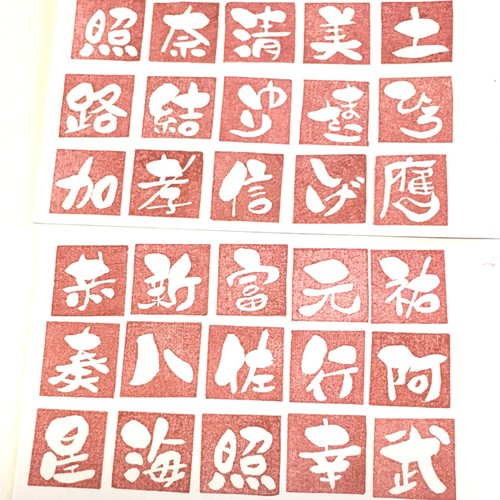 照 奈 清 美 土
路 結 ゆり まさこ ひろ
加 孝 信 しげ 鷹
恭 新 富 元 祐
奏 八 佐 行 阿
星 海 照 幸 武